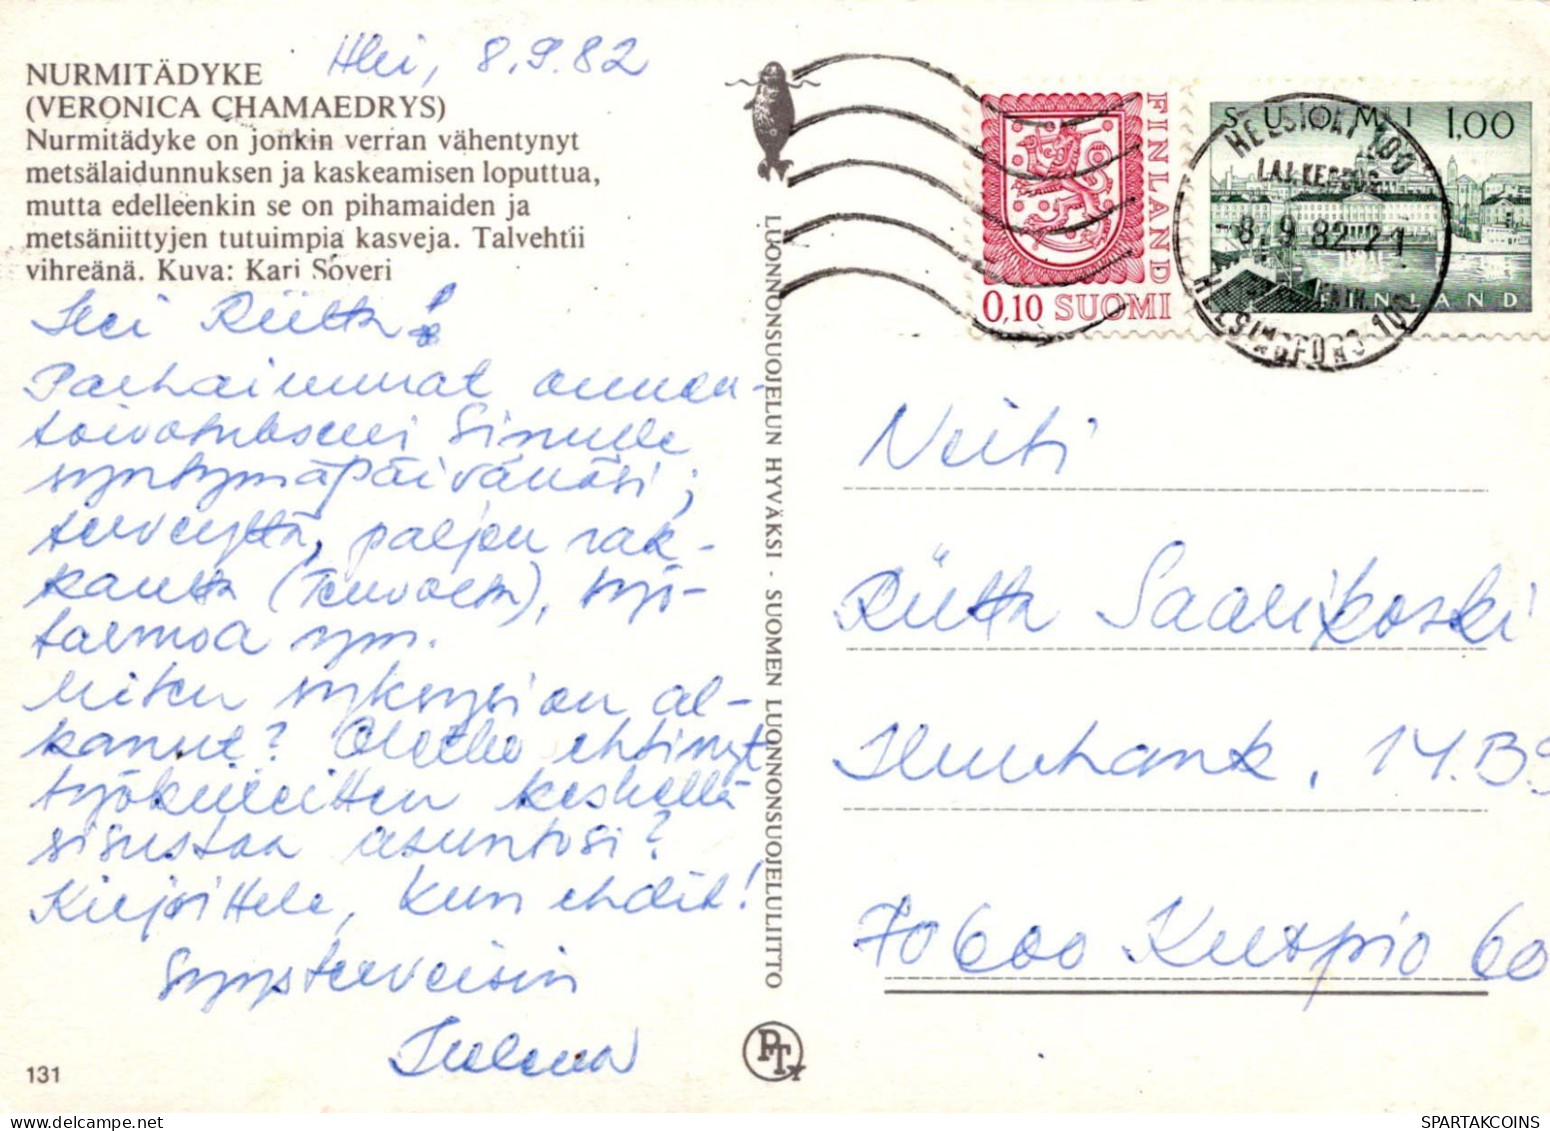 Hki, 8.9.82
NURMITÄDYKE
(VERONICA CHAMAEDRYS)
Nurmitädyke on jonkin verran vähentynyt
metsälaidunnuksen ja kaskeamisen loputtua,
mutta edelleenkin se on pihamaiden ja
metsäniittyjen tutuimpia kasveja. Talvehtii
vihreänä. Kuva: Kari Soveri
Hei Riitta!
Parhaimmat onnen-
toivotukseni Sinulle
syntymäpäivänäsi;
terveyttä, paljon rak-
kautta (Teuvolta), työ-
tarmoa ym.
Miten syksysi on al-
kanut? Oletko ehtinyt
työkiireitten keskellä
sisustaa asuntosi?
Kirjoittele, kun ehdit!
Syysterveisin
131
LUONNONSUOJELUN HYVÄKSI · SUOMEN LUONNONSUOJELULIITTO
PT
FINLAND
0,10 SUOMI
SUOMI 1,00
FINLAND
HELSINKI 100
8.9.82.21
HELSINGFORS 100
Neiti
Riitta Saarikoski
14.B
70600 Kuopio 60
SPARTAKCOINS.COM